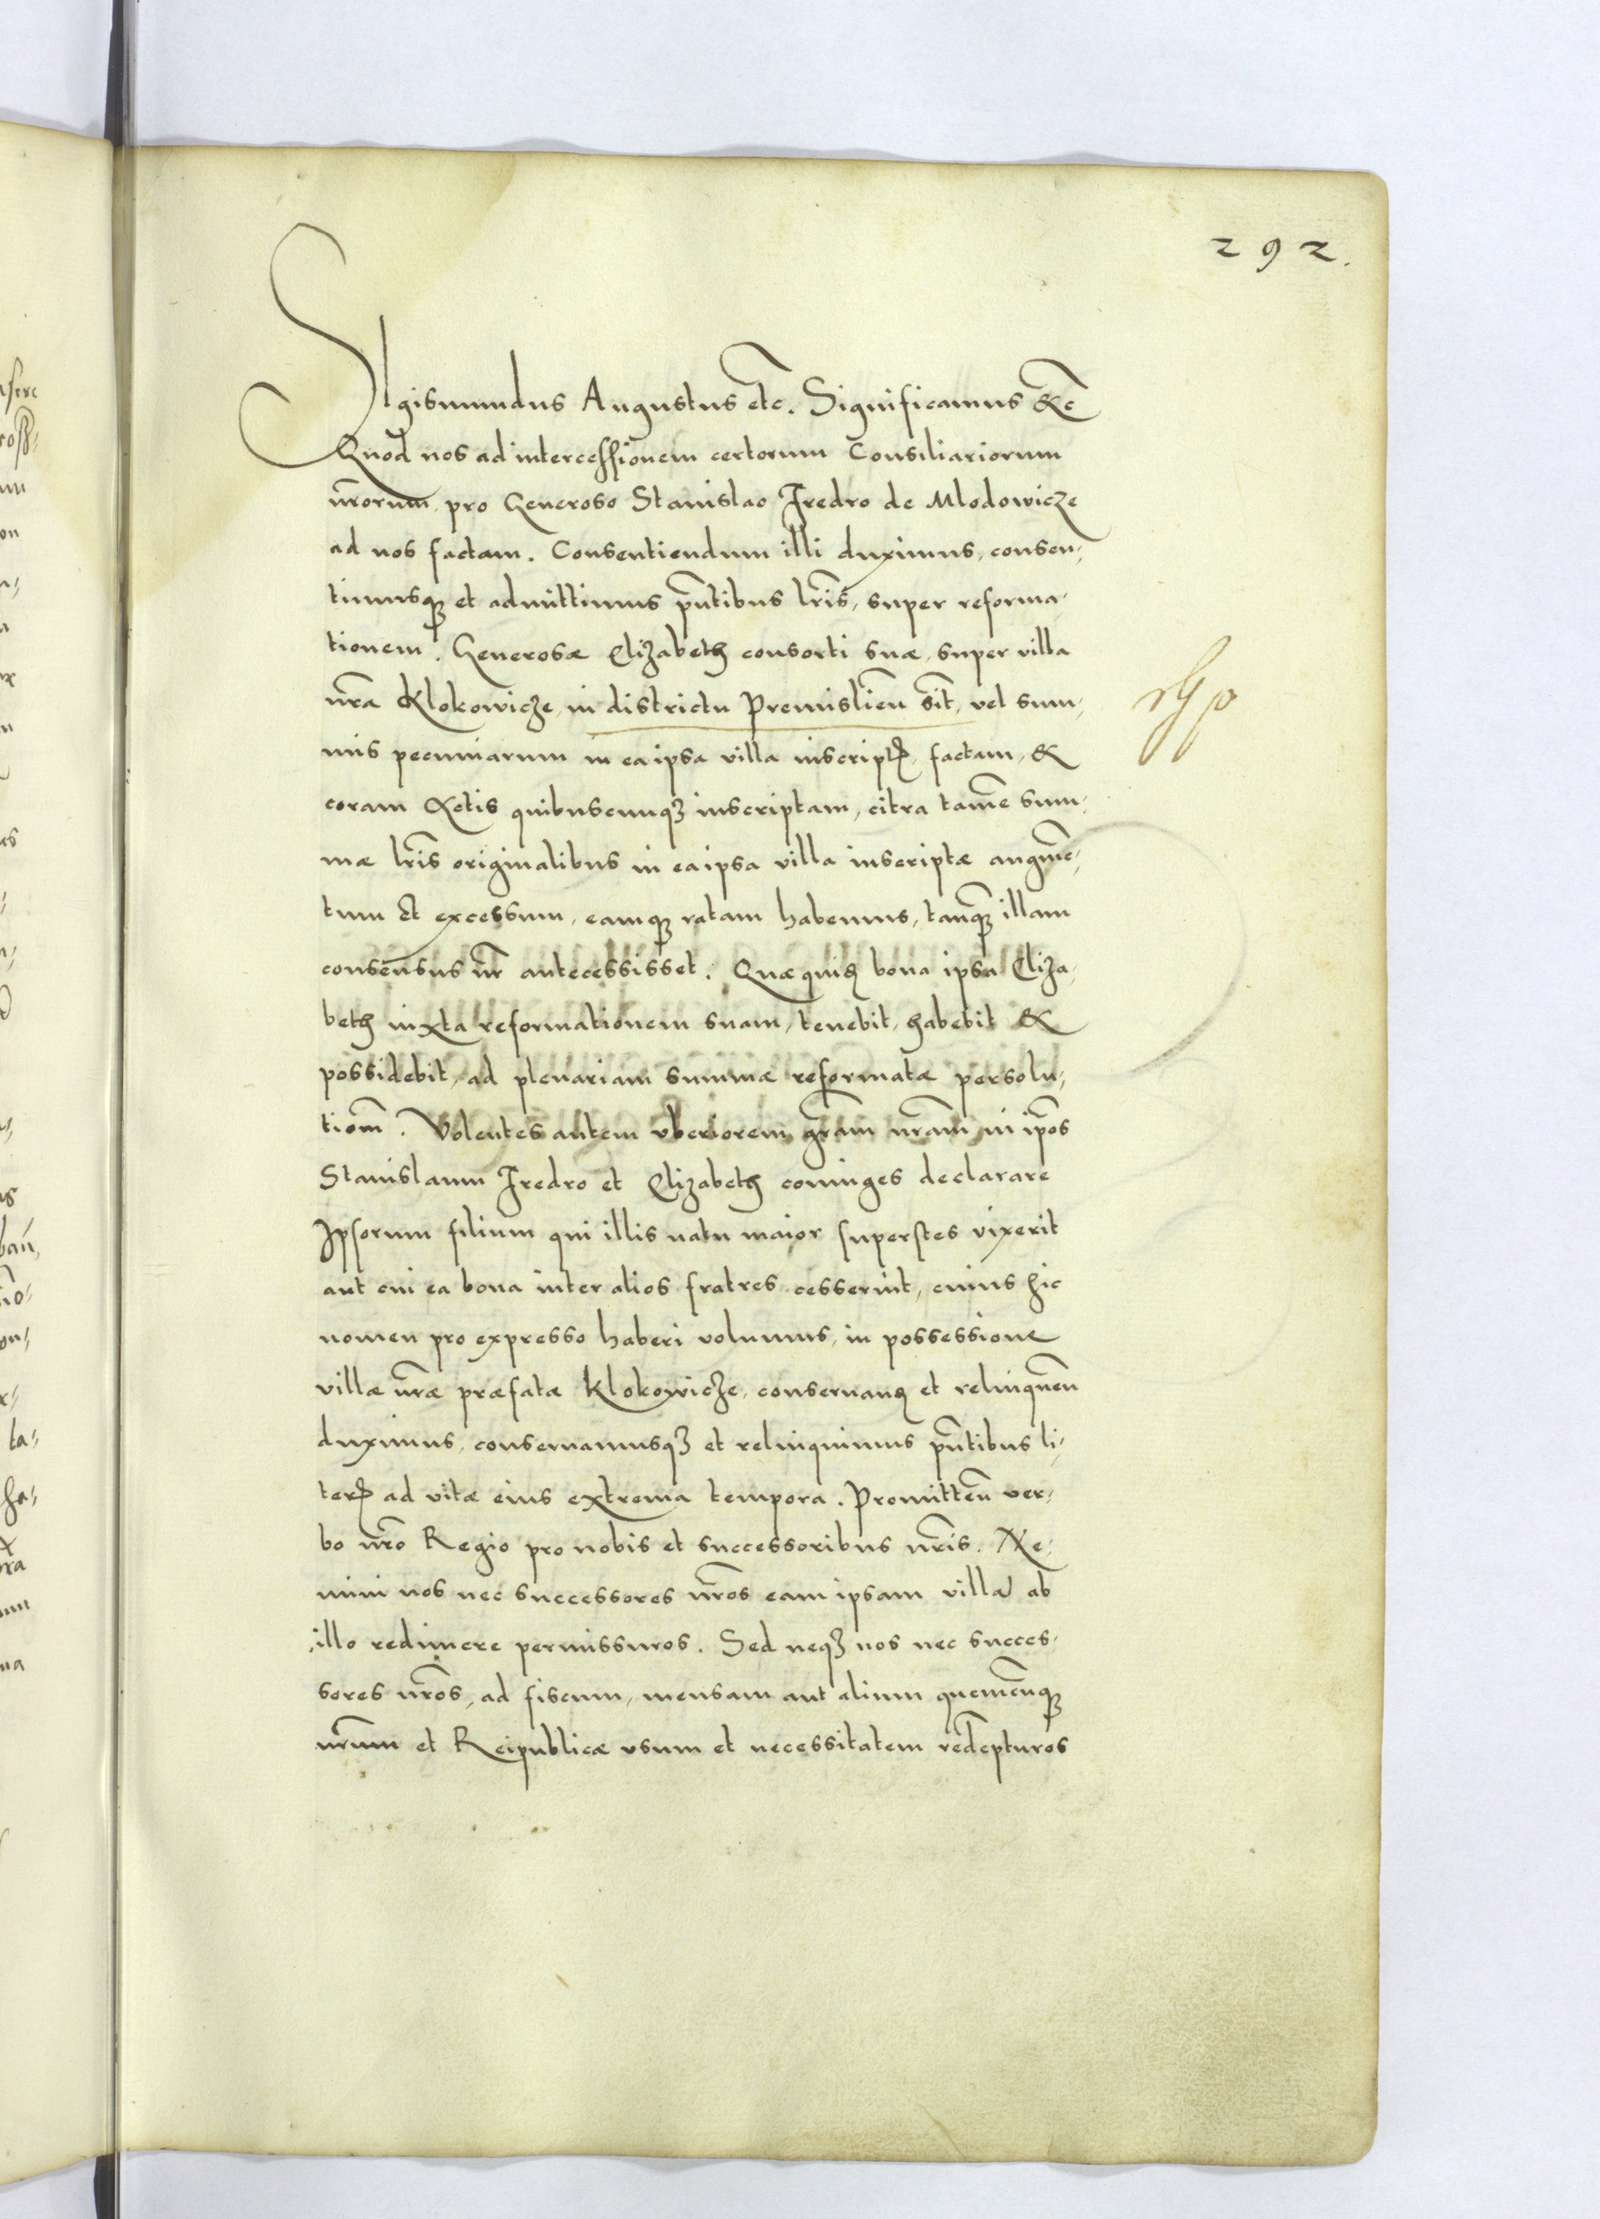 292.
SIgismundus Augustus etc. Significamus &c̄
Quod nos ad intercessionem certorum Consiliariorum
nr̄orum, pro Generoso Stanislao Fredro de Mlodowicze
ad nos factam. Consentiendum illi duximus, consen-
timusq̨ et admittimus pn̄tibus lr̄is, super reforma-
tionem. Generosæ Elizabeth consorti suæ, super villa
nr̄a Klokowicze, in districtu Premislien̄ sit̄, vel sum-
mis pecuniarum in ea ipsa villa inscriptꝭ, factam, &
coram Actis quibuscunqꝫ inscriptam, citra tamē sum-
mæ lr̄is originalibus in ea ipsa villa inscriptæ augmē-
tum Et excessum, eamqꝫ ratam habemus, tanqꝫ illam
consensus nr̄ antecessisset. Quæquid̨ bona ipsa Eliza-
beth iuxta reformationem suam, tenebit, habebit &
possidebit, ad plenariam summæ reformatæ persolu-
tiom̄. Volentes autem vberiorem gr̄am nr̄am in ip̄os
Stanislaum Fredro et Elizabeth coniuges declarare
Ipsorum filium qui illis natu maior superstes vixerit
aut cui ea bona inter alios fratres cesserint, cuius hic
nomen pro expresso haberi volumus, in possessione
villæ nr̄æ præfatæ Klokowicze, conseruanꝫ et relinquen̄
duximus, conseruamusqꝫ et relinquimus pn̄tibus li-
terꝭ ad vitæ eius extrema tempora. Promitten̄ ver-
bo nr̄o Regio pro nobis et successoribus nr̄is. Ne-
mini nos nec successores nr̄os eam ipsam villā ab
illo redimere permissuros. Sed neqꝫ nos nec succes-
sores nr̄os, ad fiscum, mensam aut alium quemcūqꝫ
nr̄um et Reipublicæ vsum et necessitatem redēpturos